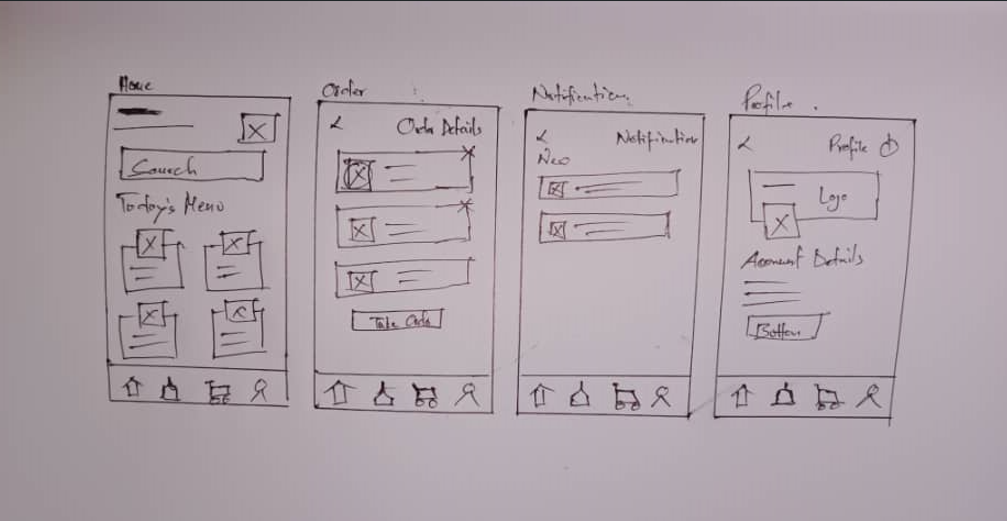 Home
Search
Today's Menu
Order
Order Details
Take Order
Notification
Notification
New
Profile
Profile
Logo
Account Details
Button